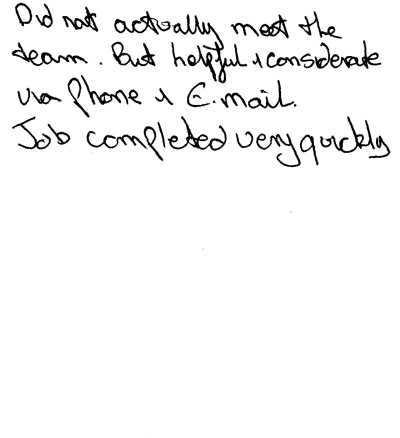 Did not actually meet the
team. But helpful & considerate
via Phone & E.mail.
Job completed very quickly